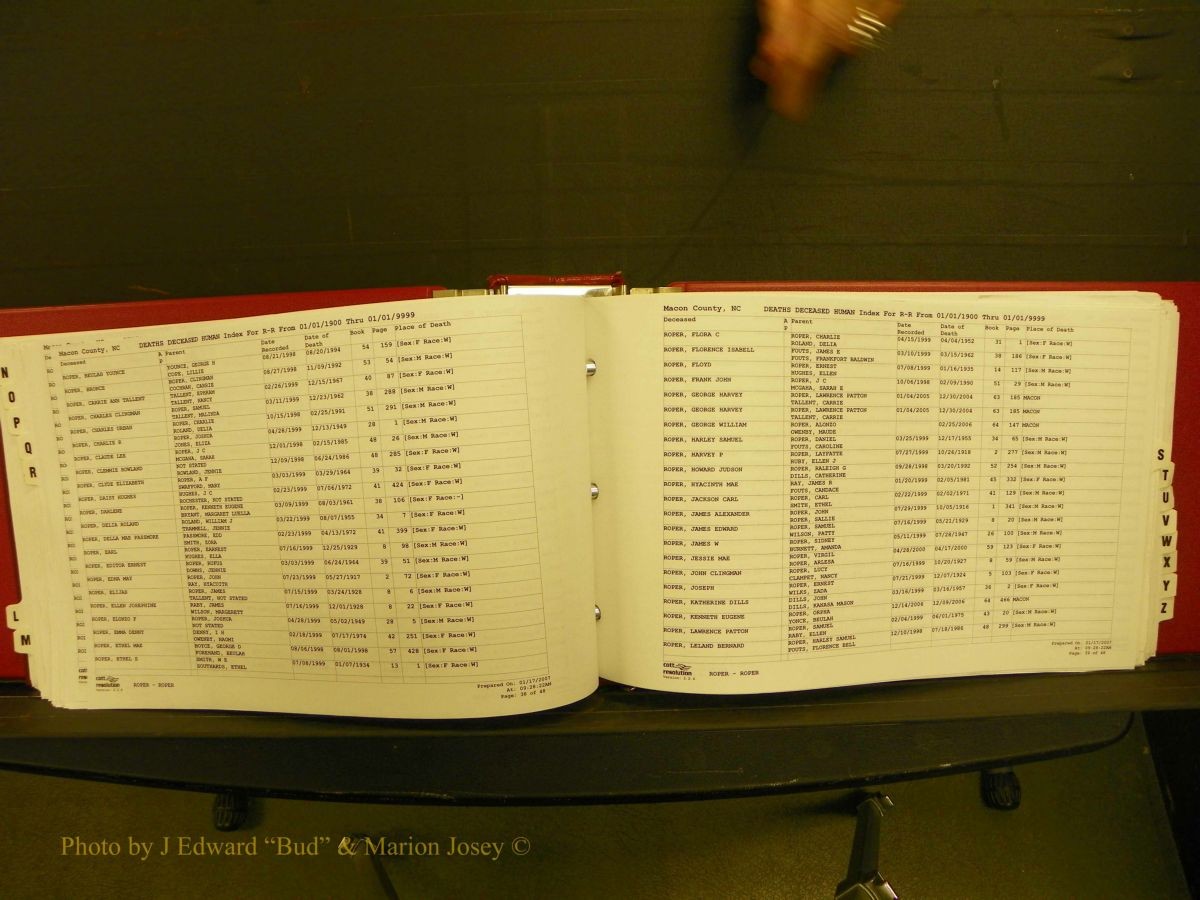 Macon County, NC DEATHS DECEASED HUMAN Index For R-R From 01/01/1900 Thru 01/01/9999
Deceased A Parent Date Recorded Date of Death Book Page Place of Death
P
ROPER, BEULAH YOUNCE YOUNCE, GEORGE H 08/21/1998 08/20/1994 54 159 [Sex:F Race:W]
COPE, LILLIE
ROPER, BRONCE ROPER, CLINGMAN 08/27/1998 11/09/1992 53 54 [Sex:M Race:W]
COCHRAN, CARRIE
ROPER, CARRIE ANN TALLENT TALLENT, EPHRAM 02/26/1999 12/15/1967 40 87 [Sex:F Race:W]
TALLENT, NANCY
ROPER, CHARLES CLINGMAN ROPER, SAMUEL 03/11/1999 12/23/1962 38 288 [Sex:M Race:W]
TALLENT, MALINDA
ROPER, CHARLES URBAN ROPER, CHARLIE 10/15/1998 02/25/1991 51 291 [Sex:M Race:W]
ROLAND, DELIA
ROPER, CHARLIE B ROPER, JOSHUA 04/28/1999 12/13/1949 28 1 [Sex:M Race:W]
JONES, ELIZA
ROPER, CLAUDE LEE ROPER, J C 12/01/1998 02/15/1985 48 26 [Sex:M Race:W]
MCGAHA, SARAH
ROPER, CLEMMIE ROWLAND NOT STATED 12/09/1998 06/24/1986 48 285 [Sex:F Race:W]
ROWLAND, JENNIE
ROPER, CLYDE ELIZABETH ROPER, A F 03/03/1999 03/29/1964 39 32 [Sex:F Race:W]
SWAFFORD, MARY
ROPER, DAISY HUGHES HUGHES, J C 02/23/1999 07/06/1972 41 424 [Sex:F Race:W]
ROCHESTER, NOT STATED
ROPER, DARLENE ROPER, KENNETH EUGENE 03/09/1999 08/03/1961 38 106 [Sex:F Race:-]
BRYANT, MARGARET LUELLA
ROPER, DELIA ROLAND ROLAND, WILLIAM J 03/22/1999 08/07/1955 34 7 [Sex:F Race:W]
TRAMMELL, JENNIE
ROPER, DELLA MAE PASSMORE PASSMORE, EDD 02/23/1999 04/13/1972 41 399 [Sex:F Race:W]
SMITH, ZORA
ROPER, EARL ROPER, EARNEST 07/16/1999 12/25/1929 8 98 [Sex:M Race:W]
HUGHES, ELLA
ROPER, EDITOR ERNEST ROPER, RUFUS 03/03/1999 06/24/1964 39 51 [Sex:M Race:W]
DOWNS, JENNIE
ROPER, EDNA MAY ROPER, JOHN 07/23/1999 05/27/1917 2 72 [Sex:F Race:W]
RAY, HYACOTH
ROPER, ELIJAH ROPER, JAMES 07/15/1999 03/24/1928 8 6 [Sex:M Race:W]
TALLENT, NOT STATED
ROPER, ELLEN JOSEPHINE RABY, JAMES 07/16/1999 12/01/1928 8 22 [Sex:F Race:W]
WILSON, MARGERETT
ROPER, ELONZO P ROPER, JOSHUA 04/28/1999 05/02/1949 28 5 [Sex:M Race:W]
NOT STATED
ROPER, EMMA DENNY DENNY, I H 02/18/1999 07/17/1974 42 251 [Sex:F Race:W]
OWENBY, NAOMI
ROPER, ETHEL MAE BOYCE, GEORGE D 08/06/1998 08/01/1998 57 428 [Sex:F Race:W]
FOREHAND, BEULAH
ROPER, ETHEL S SMITH, W E 07/08/1999 01/07/1934 13 1 [Sex:F Race:W]
SOUTHARDS, ETHEL
cott
resolution
ROPER - ROPER
Prepared On: 01/17/2007
At: 09:28:22AM
Page: 38 of 48
Macon County, NC DEATHS DECEASED HUMAN Index For R-R From 01/01/1900 Thru 01/01/9999
Deceased A Parent Date Recorded Date of Death Book Page Place of Death
P
ROPER, FLORA C ROPER, CHARLIE 04/15/1999 04/04/1952 31 1 [Sex:F Race:W]
ROLAND, DELIA
ROPER, FLORENCE ISABELL FOUTS, JAMES E 03/10/1999 03/15/1962 38 186 [Sex:F Race:W]
FOUTS, FRANKFORT BALDWIN
ROPER, FLOYD ROPER, ERNEST 07/08/1999 01/16/1935 14 117 [Sex:M Race:W]
HUGHES, ELLEN
ROPER, FRANK JOHN ROPER, J C 10/06/1998 02/09/1990 51 29 [Sex:M Race:W]
MCGAHA, SARAH E
ROPER, GEORGE HARVEY ROPER, LAWRENCE PATTON 01/04/2005 12/30/2004 63 185 MACON
TALLENT, CARRIE
ROPER, GEORGE HARVEY ROPER, LAWRENCE PATTON 01/04/2005 12/30/2004 63 185 MACON
TALLENT, CARRIE
ROPER, GEORGE WILLIAM ROPER, ALONZO 02/25/2006 64 147 MACON
OWENBY, MAUDE
ROPER, HARLEY SAMUEL ROPER, DANIEL 03/25/1999 12/17/1955 34 65 [Sex:M Race:W]
FOUTS, CAROLINE
ROPER, HARVEY P ROPER, LAYFATTE 07/27/1999 10/26/1918 2 277 [Sex:M Race:W]
RUBY, ELLEN J
ROPER, HOWARD JUDSON ROPER, RALEIGH G 09/28/1998 03/20/1992 52 254 [Sex:M Race:W]
DILLS, CATHERINE
ROPER, HYACINTH MAE RAY, JAMES R 01/20/1999 02/05/1981 45 332 [Sex:F Race:W]
FOUTS, CANDACE
ROPER, JACKSON CARL ROPER, CARL 02/22/1999 02/02/1971 41 129 [Sex:M Race:W]
SMITH, ETHEL
ROPER, JAMES ALEXANDER ROPER, JOHN 07/29/1999 10/05/1916 1 341 [Sex:M Race:W]
ROPER, SALLIE
ROPER, JAMES EDWARD ROPER, SAMUEL 07/16/1999 05/21/1929 8 20 [Sex:M Race:W]
WILSON, PATTY
ROPER, JAMES W ROPER, SIDNEY 05/11/1999 07/28/1947 26 100 [Sex:M Race:W]
BURNETT, AMANDA
ROPER, JESSIE MAE ROPER, VIRGIL 04/28/2000 04/17/2000 59 123 [Sex:F Race:W]
ROPER, ARLESA
ROPER, JOHN CLINGMAN ROPER, LUCY 07/16/1999 10/20/1927 8 59 [Sex:M Race:W]
CLAMPET, NANCY
ROPER, JOSEPH ROPER, ERNEST 07/21/1999 12/07/1924 5 103 [Sex:F Race:W]
WILKS, EADA
ROPER, KATHERINE DILLS DILLS, JOHN 03/16/1999 03/16/1957 36 2 [Sex:F Race:W]
DILLS, KANASA MASON
ROPER, KENNETH EUGENE ROPER, ORPHA 12/14/2006 12/09/2006 64 466 MACON
YONCE, BEULAH
ROPER, LAWRENCE PATTON ROPER, SAMUEL 02/04/1999 06/01/1975 43 20 [Sex:M Race:W]
RABY, ELLEN
ROPER, LELAND BERNARD ROPER, HARLEY SAMUEL 12/10/1998 07/18/1986 48 299 [Sex:M Race:W]
FOUTS, FLORENCE BELL
cott
resolution
ROPER - ROPER
Prepared On: 01/17/2007
At: 09:28:22AM
Page: 39 of 48
N
O
P
Q
R
L
M
S
T
U
V
W
X
Y
Z
Photo by J Edward “Bud” & Marion Josey ©